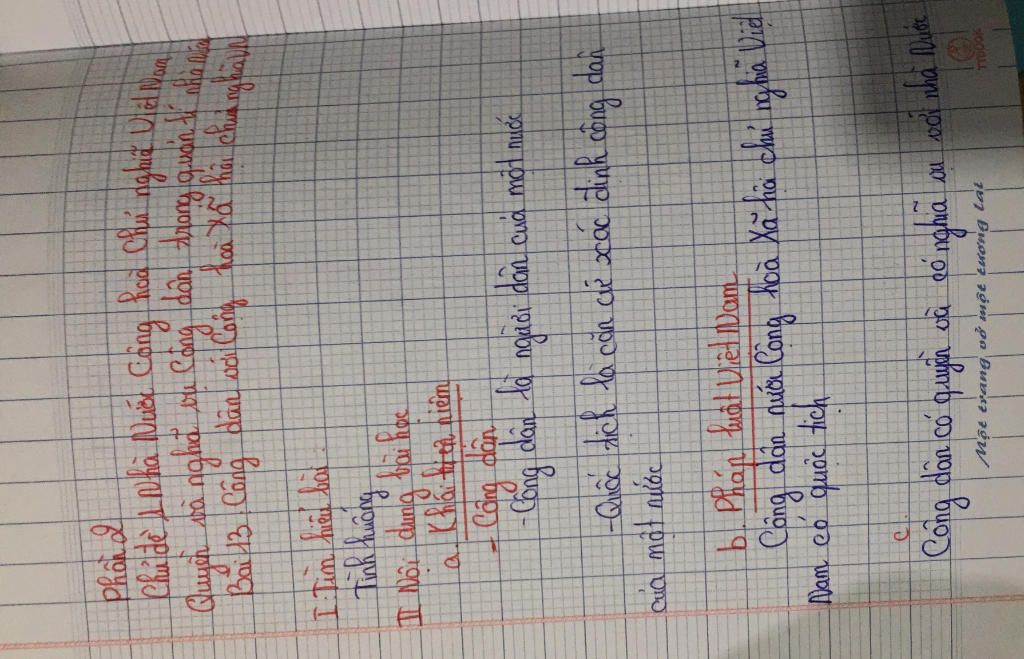 Phần 2
Chủ đề 1 Nhà Nước Cộng hoà Chủ nghĩa Việt Nam
Quyền và nghĩa vụ Công dân trong quản lí nhà Nước
Bài 13: Công dân với Cộng hoà Xã hội chủ nghĩa VN
I: Tìm hiểu bài:
Tình huống
II Nội dung bài học
a. Khái niệm
- Công dân
- Công dân là người dân của một nước
- Quốc tịch là căn cứ xác định công dân
của một nước
b. Pháp luật Việt Nam
Công dân nước Cộng hoà Xã hội chủ nghĩa Việt
Nam có quốc tịch
c
Công dân có quyền và có nghĩa vụ với nhà Nước
Một trang vở một tương lai
TIGON